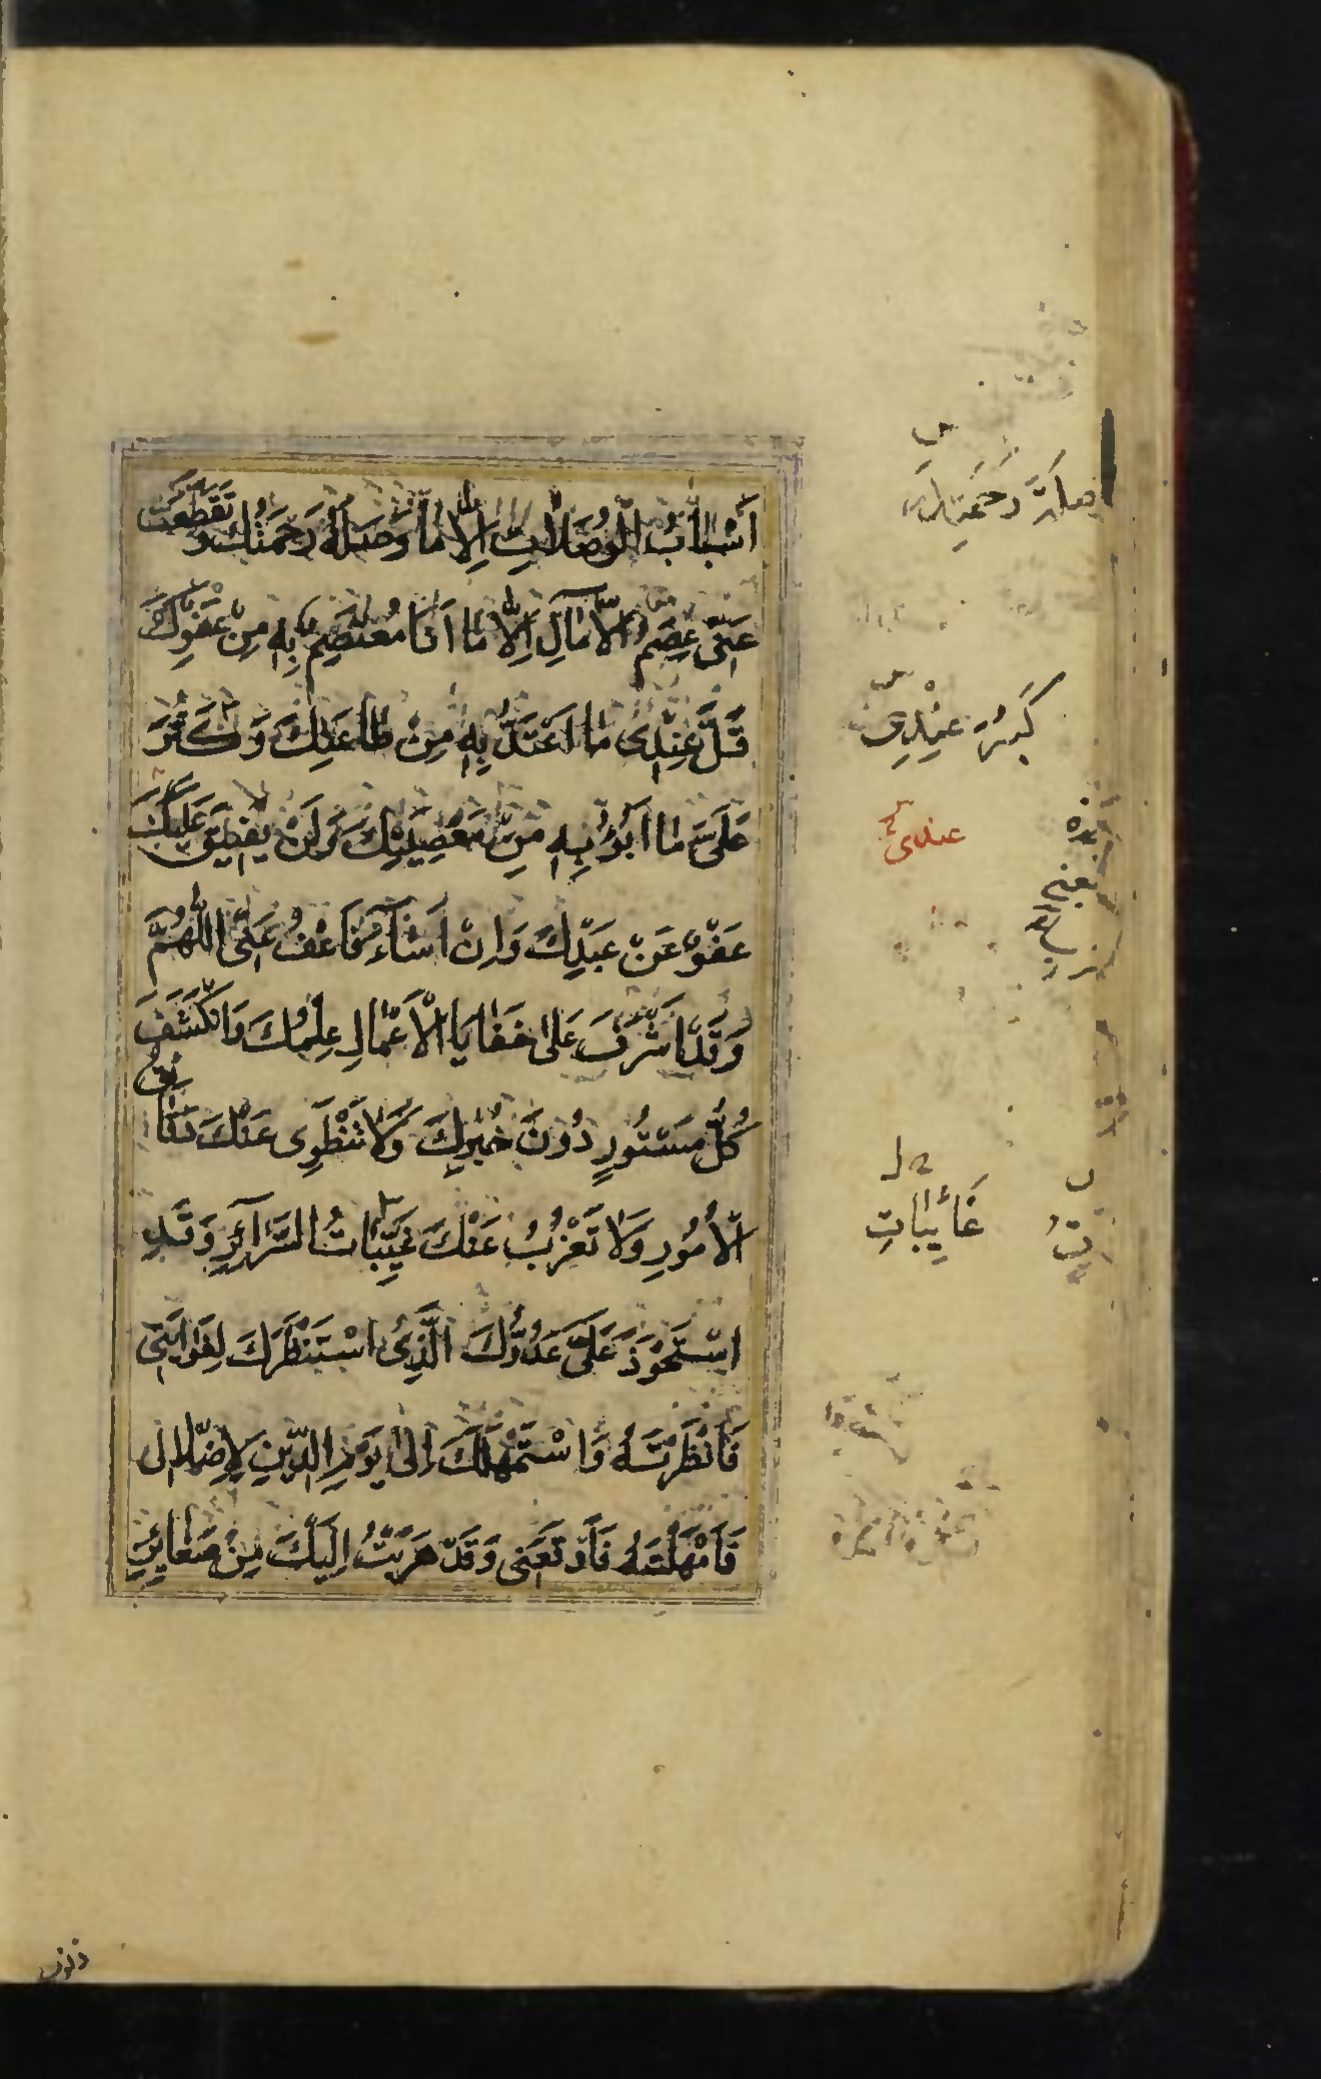 أَسْبَابُ الْوُصُلَاتِ إِلَّا مَا وَصَلَهُ رَحْمَتُكَ وَ تَقَطَّعَتْ
عَنِّي عِصَمُ الْآمَالِ إِلَّا مَا أَنَا مُعْتَصِمٌ بِهِ مِنْ عَفْوِكَ
قَلَّ عِنْدِي مَا أَعْتَدُّ بِهِ مِنْ طَاعَتِكَ وَكَثُرَ
عَلَيَّ مَا أَبُوءُ بِهِ مِنْ مَعْصِيَتِكَ وَلَنْ يَضِيقَ عَلَيْكَ
عَفْوٌ عَنْ عَبْدِكَ وَإِنْ أَسَاءَ فَاعْفُ عَنِّي اللَّهُمَّ
وَقَدْ أَشْرَفَ عَلَى خَفَايَا الْأَعْمَالِ عِلْمُكَ وَانْكَشَفَ
كُلُّ مَسْتُورٍ دُونَ خُبْرِكَ وَلَا تَنْطَوِي عَنْكَ دَقَائِقُ
الْأُمُورِ وَلَا تَعْزُبُ عَنْكَ غَيِّبَاتُ السَّرَائِرِ وَقَدِ
اسْتَحْوَذَ عَلَيَّ عَدُوُّكَ الَّذِي اسْتَنْظَرَكَ لِغَوَايَتِي
فَأَنْظَرْتَهُ وَاسْتَمْهَلَكَ إِلَى يَوْمِ الدِّينِ لِإِضْلَالِي
فَأَمْهَلْتَهُ فَأَوْقَعَنِي وَقَدْ هَرَبْتُ إِلَيْكَ مِنْ صَغَائِرِ
عندي
غَائِبَاتِ
ذنوب